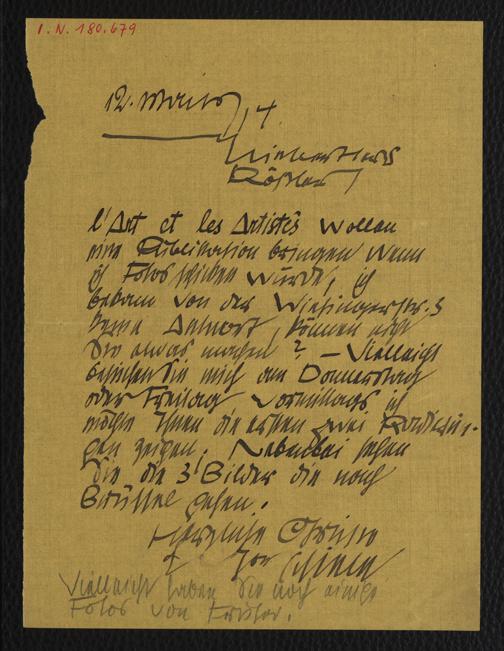 I.N. 180.679
12. März 14
Lieber Herr
Rößler
l'Art et les Artistes wollen
eine Publikation bringen wenn
ich Fotos schicken würde, ich
bekam von der Wiesingerstr. 3
keine Antwort, können auch
Sie etwas machen? — Vielleicht
besuchen Sie mich am Donnerstag
oder Freitag Vormittags ich
möchte Ihnen die ersten zwei Radierun-
gen zeigen. Nebenbei sehen
Sie die 3 Bilder die nach
Brüssel gehen.
Herzliche Grüße
Ihr Schiele
Vielleicht haben Sie noch einige
Fotos von früher.